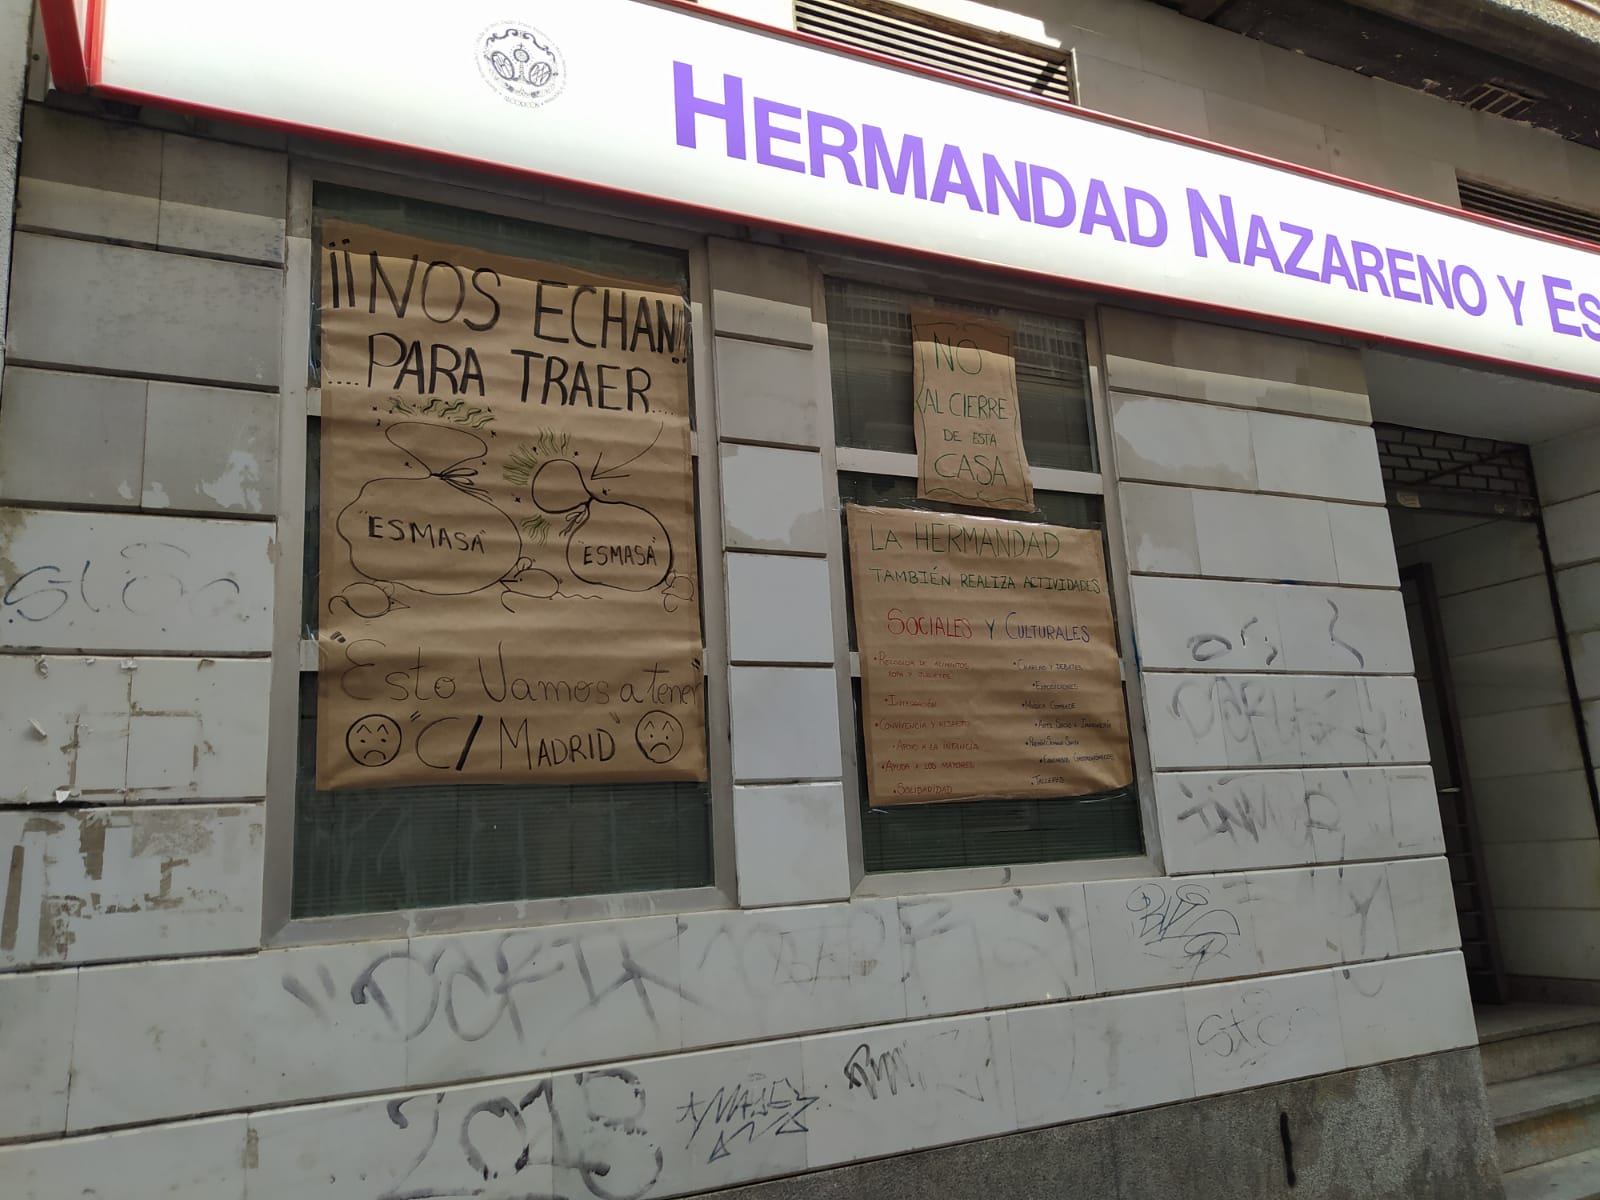 HERMANDAD NAZARENO Y ES
ALCORCÓN
¡¡NOS ECHAN!!
....PARA TRAER....
"ESMASA"
"ESMASA"
"Esto Vamos a tener"
"C/ MADRID"
NO
AL CIERRE
DE ESTA
CASA
LA HERMANDAD
TAMBIÉN REALIZA ACTIVIDADES
SOCIALES Y CULTURALES
• RECOGIDA DE ALIMENTOS
ROPA Y JUGUETES
• INTEGRACIÓN
• CONVIVENCIA Y RESPETO
• APOYO A LA INFANCIA
• AYUDA A LOS MAYORES
• SOLIDARIDAD
• CHARLAS Y DEBATES
• EXPOSICIONES
• MÚSICA COFRADE
• ARTE SACRO E IMAGINERÍA
• PREGÓN SEMANA SANTA
• ENCUENTROS GASTRONÓMICOS
• TALLERES
2013